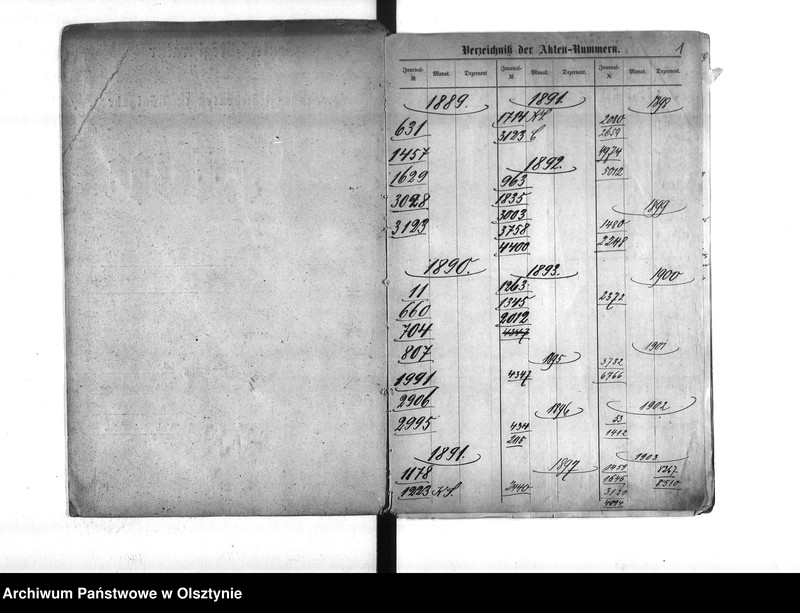 Verzeichniß der Akten-Nummern.
1
Journal- № Monat. Dezernent
Journal- № Monat. Dezernent.
Journal- № Monat. Dezernent.
1889.
631
1457
1629
3028
3123
1890.
11
660
704
807
1991
2906
2995
1891.
1178
1223
1891.
1714
3123
1892.
963
1835
3003
3758
4400
1893.
1263
1345
2012
4347
1895
4347
1896
2115
1897
2440
1898
2080
2659
4974
5012
1899
1480
2248
1900
2372
1901
3782
6766
1902
53
1402
1903
1459
1646
3180
8267
8510
Archiwum Państwowe w Olsztynie